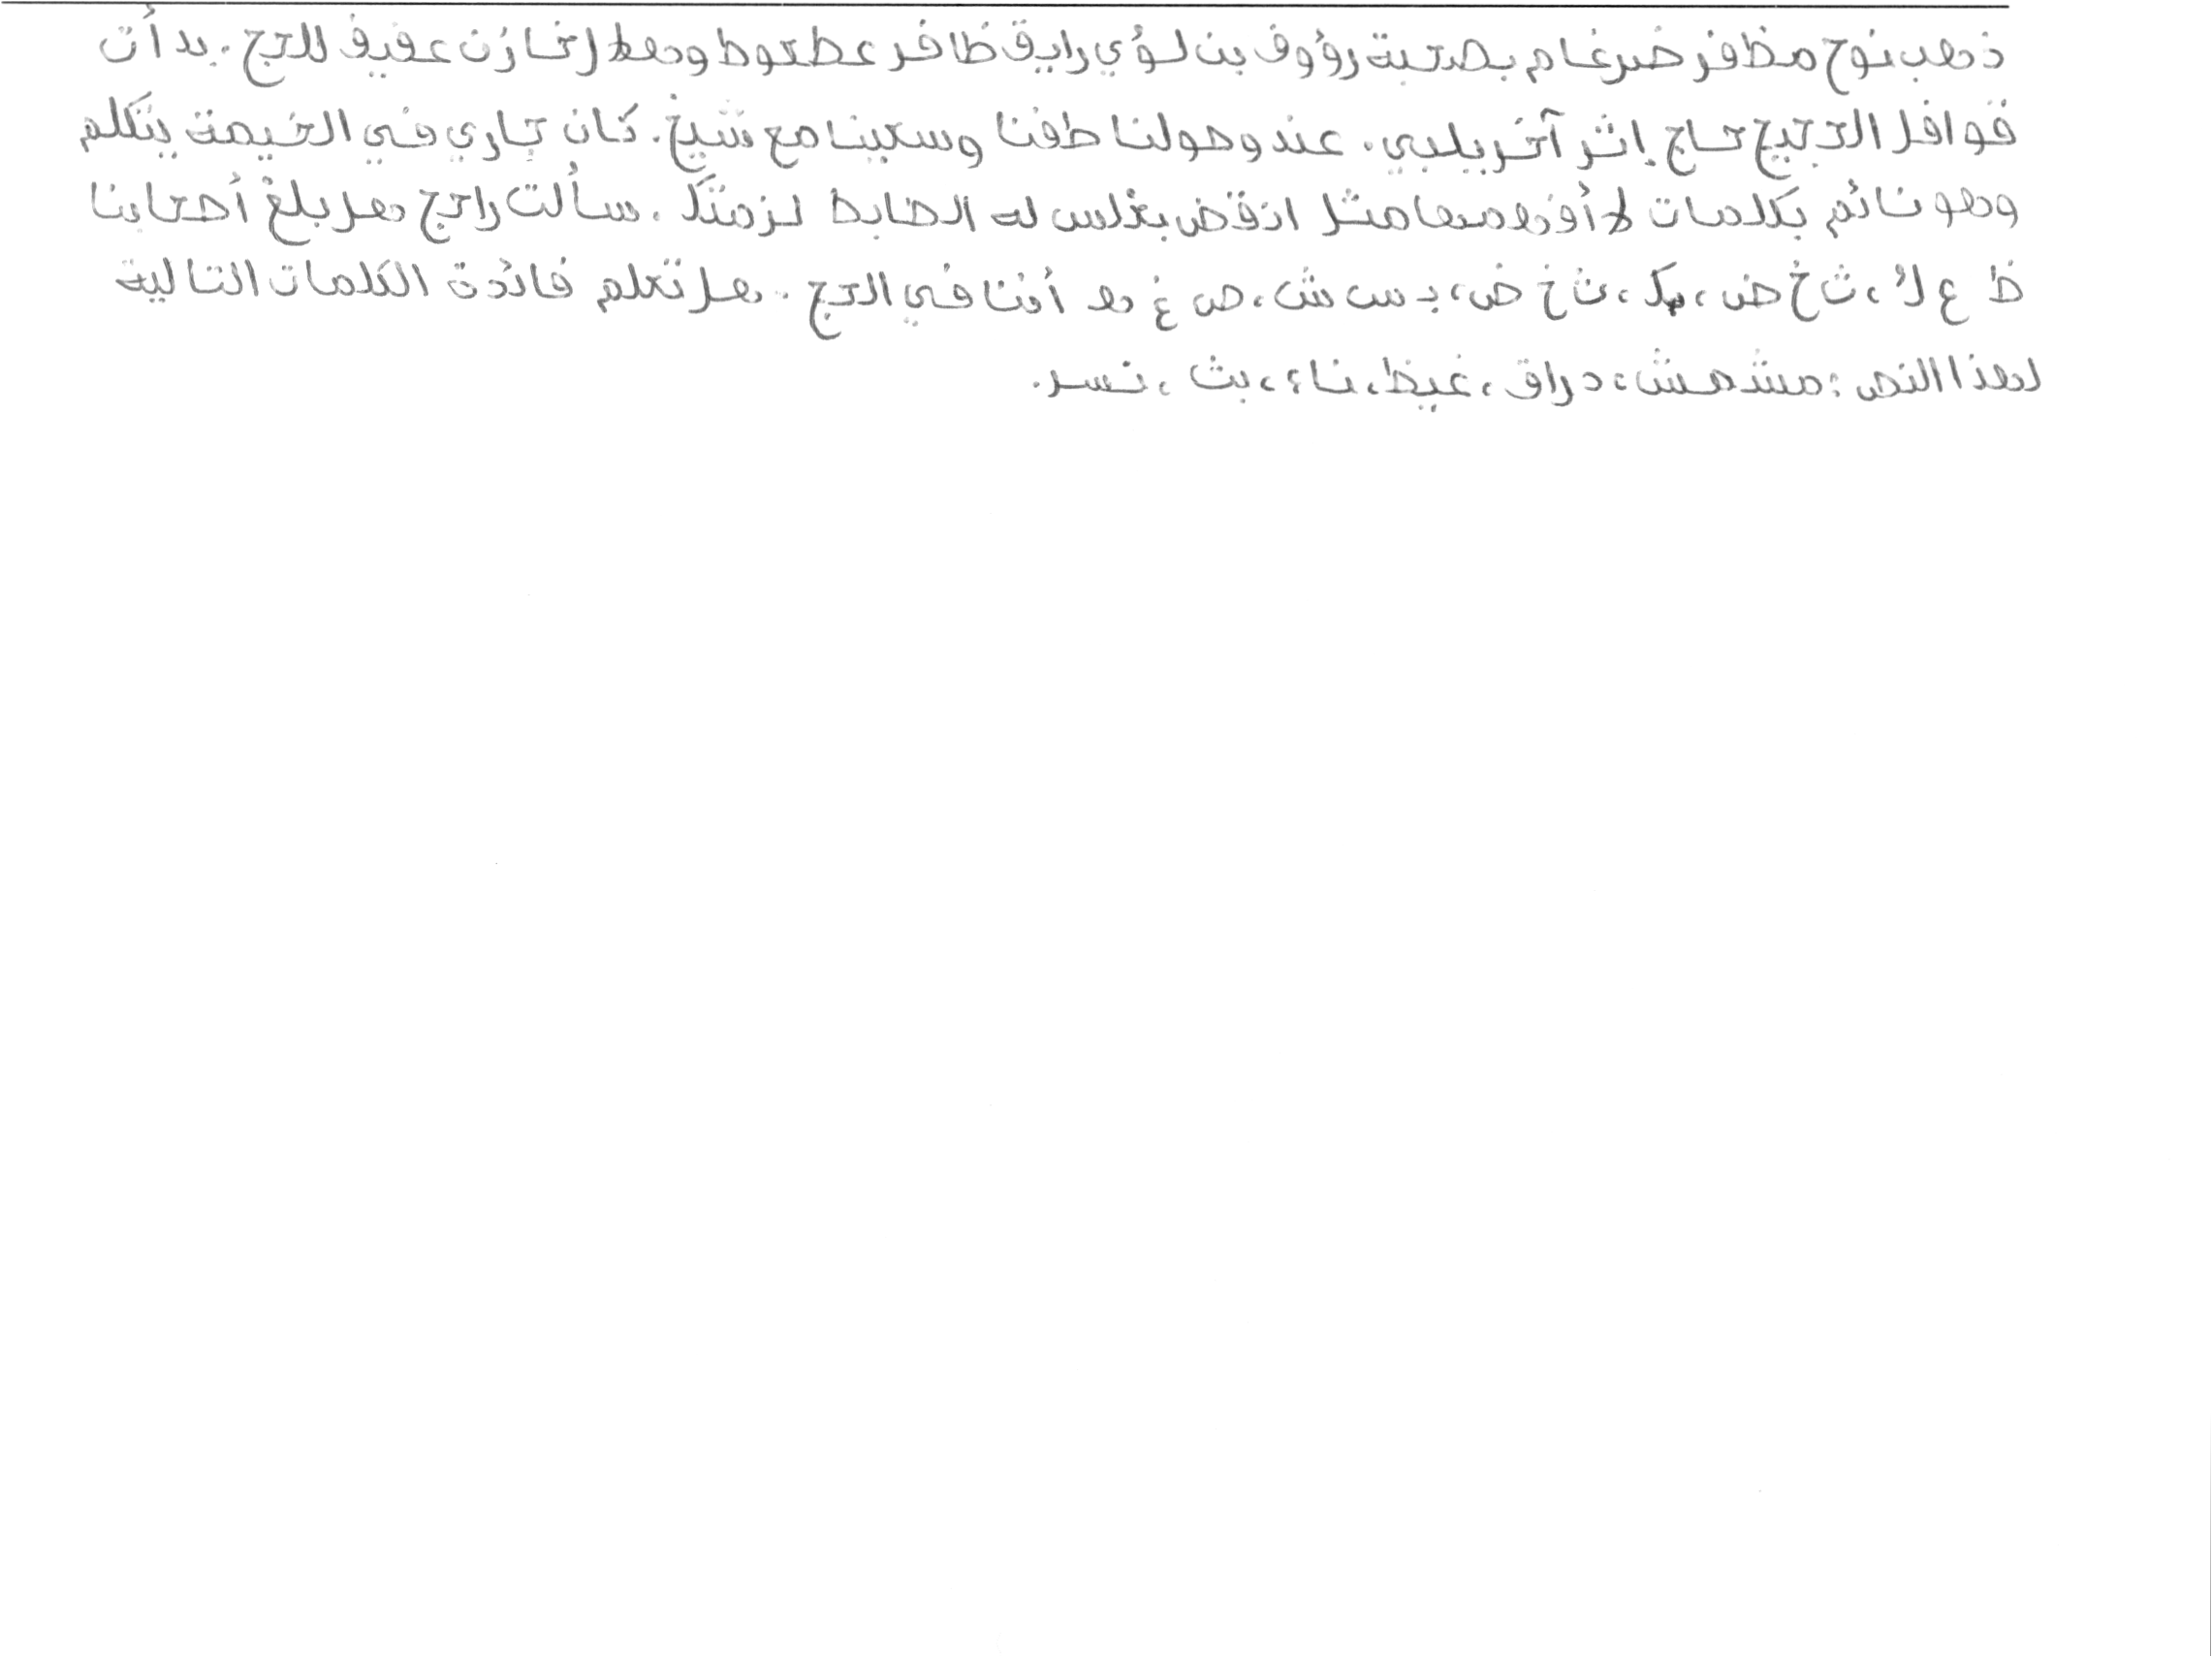 ذهب نوح مظفر ضرغام بصحبة رؤوف بن لؤي رايق ظافر عطعوط وهلال خازن عفيف للحج. بدأت
قوافل الحجيج حاج إثر آخر يلبي. عند وصولنا طفنا وسعينا مع شيخ. كان جاري في الخيمة يتكلم
وهو نائم بكلمات لا أفهمها مثل انقض بغلس له الضابط لزمتك. سألت راجح هل بلغ أصحابنا
ظ ع ك، ث خ ض، بك، ث خ ض، د س ش، ص غ ه أننا في الحج. هل تعلم فائدة الكلمات التالية
لهذا النص: مشمش، دراق، غيظ، ناء، بث، نسر.